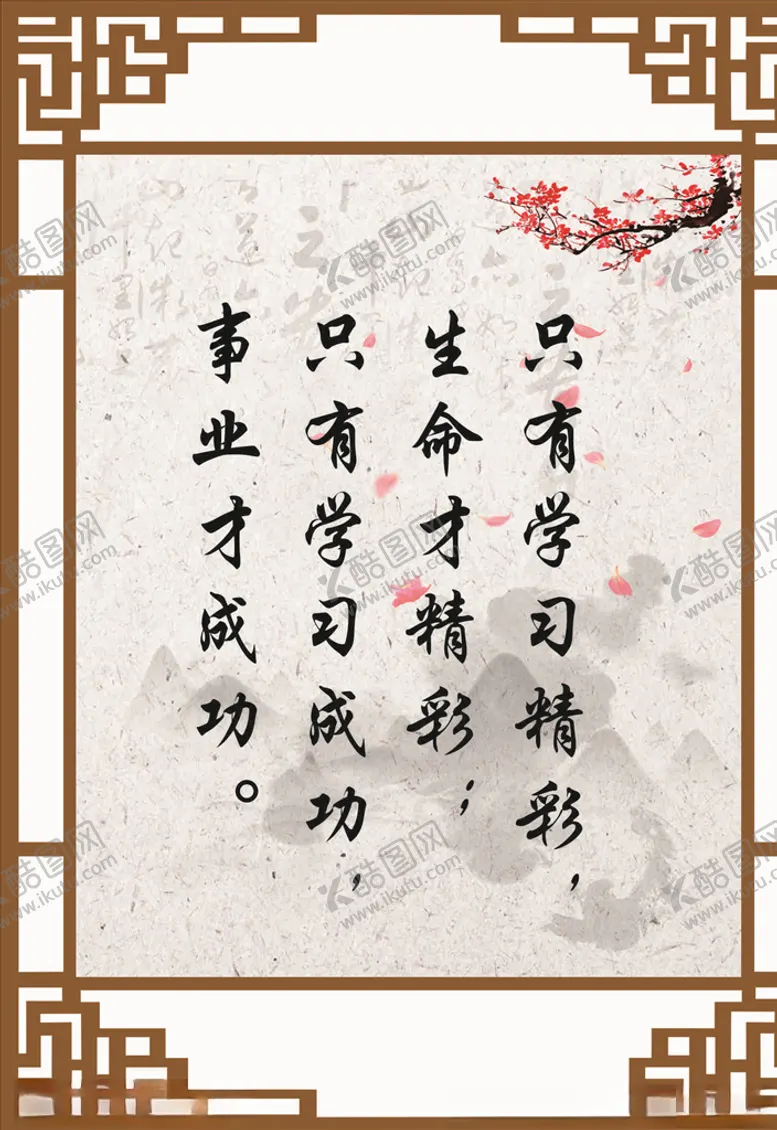 只有学习精彩，
生命才精彩；
只有学习成功，
事业才成功。
酷图网
www.ikutu.com